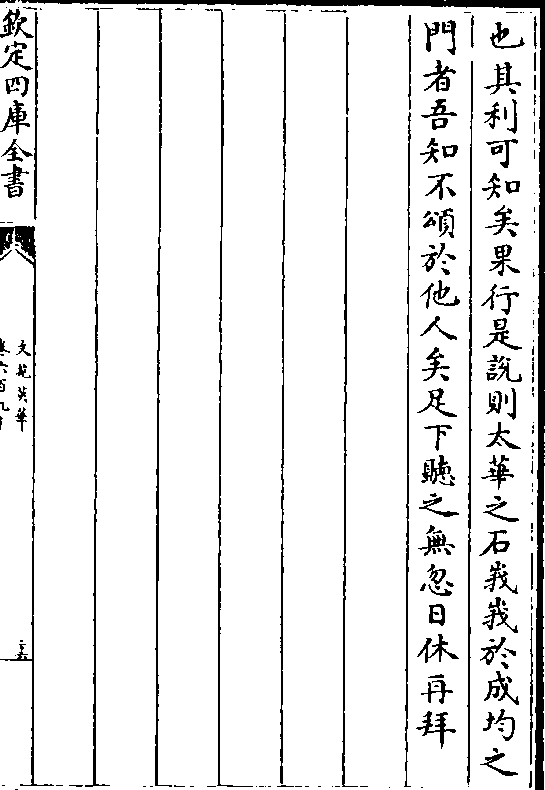 也其利可知矣果行是説則太華之石峩峩於成均之
門者吾知不頌於他人矣足下聽之無忽日休再拜
欽定四庫全書
文苑英華
卷六百九十